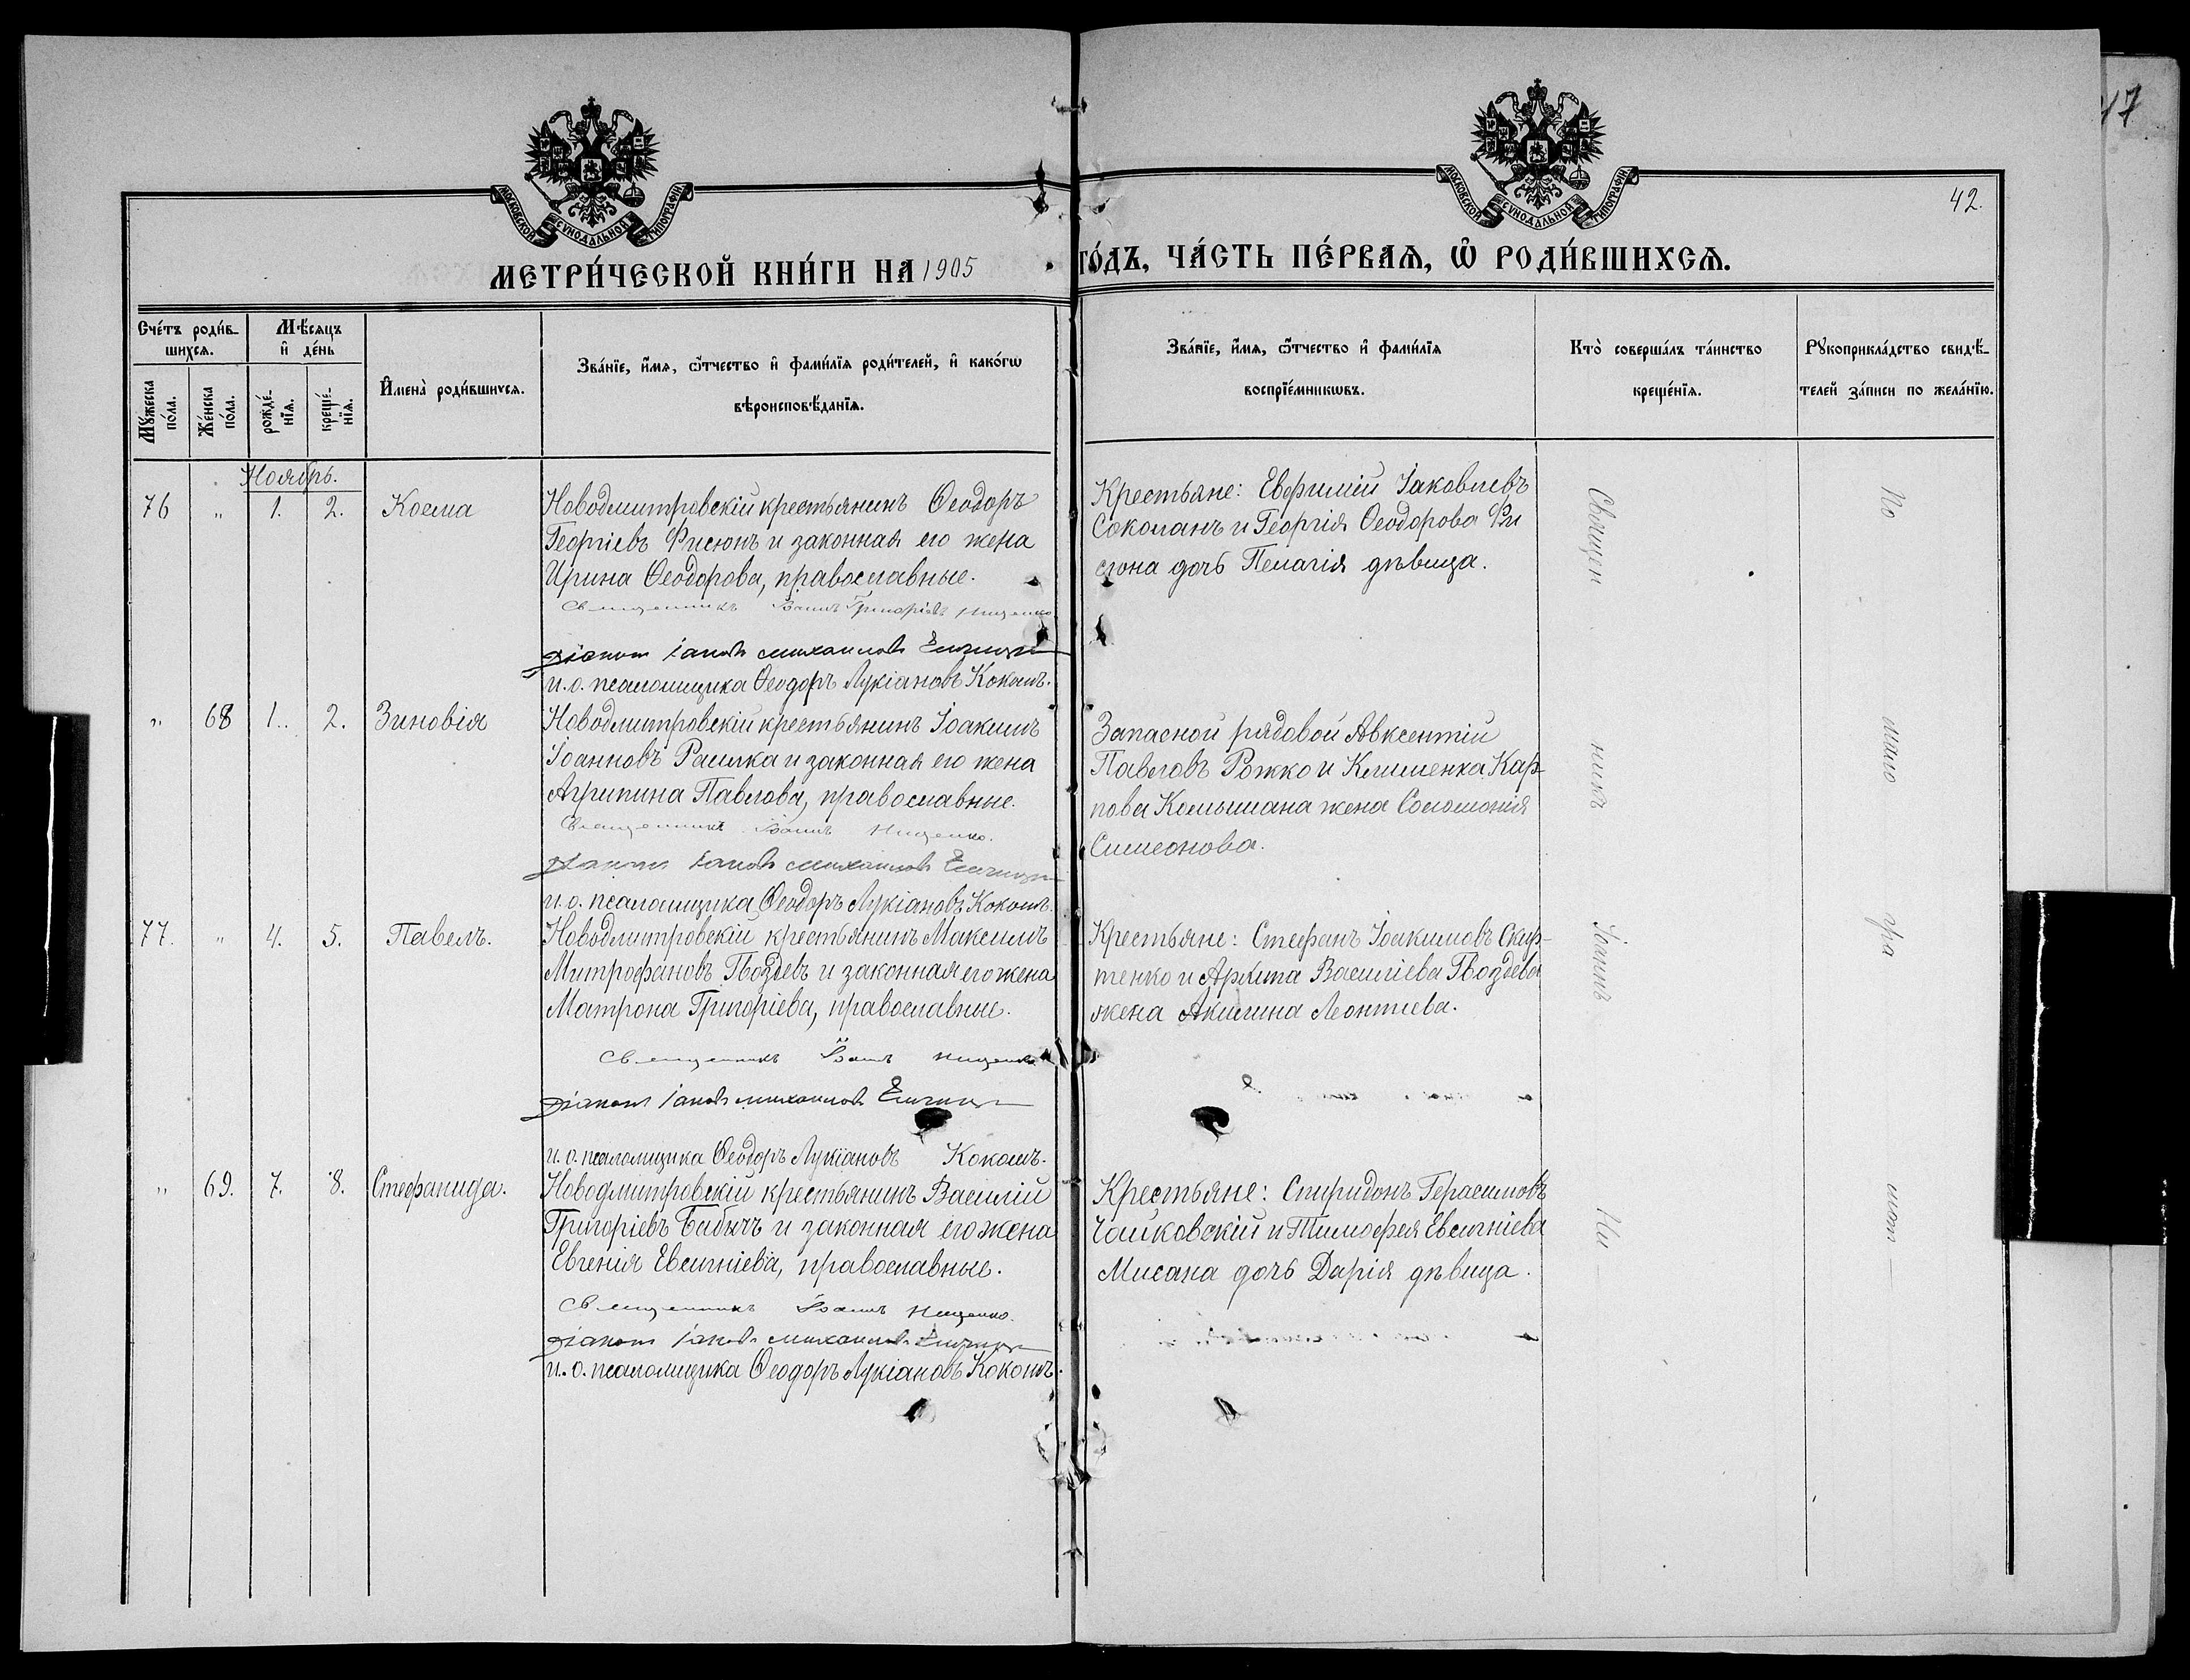 17
42.
МОСКОВСКОЙ СѴНОДАЛЬНОЙ ТИПОГРАФІИ
МОСКОВСКОЙ СѴНОДАЛЬНОЙ ТИПОГРАФІИ
МЕТРИ́ЧЕСКОЙ КНИ́ГИ НА 1905 ГО́ДЪ, ЧА́СТЬ ПЕ́РВАѦ, Ѿ РОДИ́ВШИХСѦ.
Сче́тъ роди́в-
шихсѧ.
Мѣ́сѧцъ
и҆ де́нь
Мꙋ́жеска по́ла.
Же́нска по́ла.
рожде́-
нїѧ.
креще́-
нїѧ.
И҆мена̀ роди́вшихсѧ.
Зва́нїе, и҆́мѧ, ѻ҆́тчество и҆ фами́лїѧ роди́телей, и҆ како́гѡ
вѣроисповѣ́данїѧ.
Зва́нїе, и҆́мѧ, ѻ҆́тчество и҆ фами́лїѧ
воспрїе́мникѡвъ.
Кто̀ соверша́лъ та́инство
креще́нїѧ.
Рꙋкоприкла́дство свидѣ́-
телей за́писи по жела́нїю.
Ноябрь.
76 " 1. 2. Косма
Новодмитровскій крестьянинъ Ѳеодоръ
Георгіевъ Фисюнъ и законная его жена
Ирина Ѳеодорова, православные.
Священникъ Іоаннъ Григоріевъ Нищенко
Діаконъ Іаковъ Михаиловъ
и. о. псаломщика Ѳеодоръ Лукіановъ Кокошъ.
Крестьяне: Евфимій Іаковлевъ
Соколанъ и Георгія Ѳеодорова Фи
сюна дочь Пелагія дѣвица.
" 68 1. 2. Зиновія
Новодмитровскій крестьянинъ Іоакимъ
Іоанновъ Рашка и законная его жена
Агрипина Павлова, православные.
Священникъ Іоаннъ Нищенко.
Діаконъ Іаковъ Михаиловъ
и. о. псаломщика Ѳеодоръ Лукіановъ Кокошъ.
Запасной рядовой Авксентій
Павловъ Рожко и Климента Кар-
пова Колышана жена Соломонія
Симеонова.
77. " 4. 5. Павелъ.
Новодмитровскій крестьянинъ Максимъ
Митрофановъ Гвоздевъ и законная его жена
Матрона Григоріева, православные.
Священникъ Іоаннъ Нищенко
Діаконъ Іаковъ Михаиловъ
и. о. псаломщика Ѳеодоръ Лукіановъ Кокошъ.
Крестьяне: Стефанъ Іоакимовъ Скир-
тенко и Архипа Василіева Гвоздева
жена Акилина Леонтіева.
" 69. 7. 8. Стефанида.
Новодмитровскій крестьянинъ Василій
Григоріевъ Бабычъ и законная его жена
Евгенія Евсигніева, православные.
Священникъ Іоаннъ Нищенко.
Діаконъ Іаковъ Михаиловъ
и. о. псаломщика Ѳеодоръ Лукіановъ Кокошъ.
Крестьяне: Спиридонъ Герасимовъ
Чайковскій и Тимофея Евсигніева
Мисана дочь Дарія дѣвица.
Священ
никъ
Іоаннъ
Ни